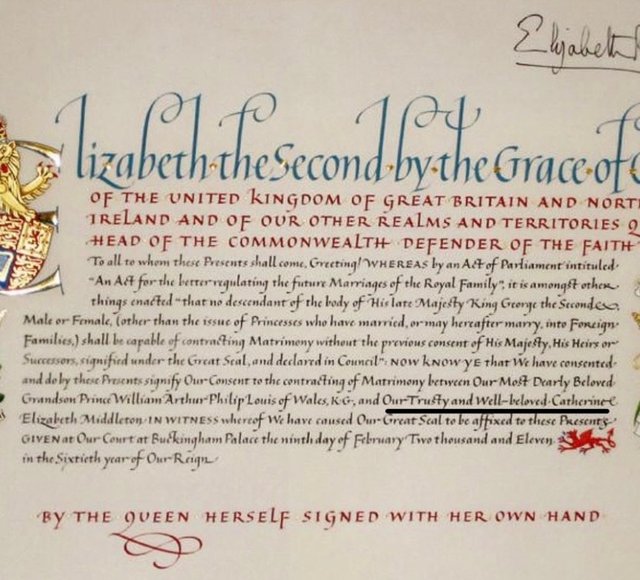 Elizabeth R
Elizabeth the Second by the Grace of
OF THE UNITED KINGDOM OF GREAT BRITAIN AND NORTH
IRELAND AND OF OUR OTHER REALMS AND TERRITORIES Q
HEAD OF THE COMMONWEALTH DEFENDER OF THE FAITH
To all to whom these Presents shall come, Greeting! WHEREAS by an Act of Parliament intituled
"An Act for the better regulating the future Marriages of the Royal Family", it is amongst other
things enacted "that no descendant of the body of His late Majesty King George the Second,
Male or Female, (other than the issue of Princesses who have married, or may hereafter marry, into Foreign
Families,) shall be capable of contracting Matrimony without the previous consent of His Majesty, His Heirs or
Successors, signified under the Great Seal, and declared in Council": NOW KNOW YE that We have consented
and do by these Presents signify Our Consent to the contracting of Matrimony between Our Most Dearly Beloved
Grandson Prince William Arthur Philip Louis of Wales, K.G., and Our Trusty and Well-beloved Catherine
Elizabeth Middleton IN WITNESS whereof We have caused Our Great Seal to be affixed to these Presents
GIVEN at Our Court at Buckingham Palace the ninth day of February Two thousand and Eleven
in the Sixtieth year of Our Reign.
BY THE QUEEN HERSELF SIGNED WITH HER OWN HAND